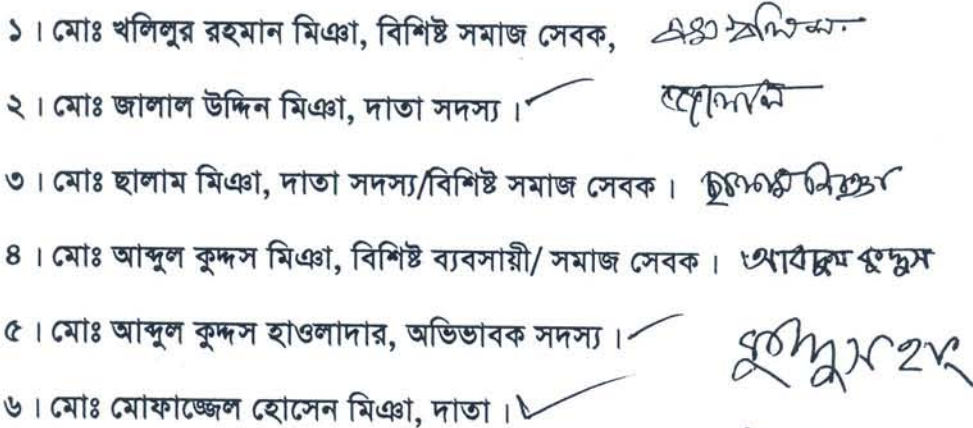 ১। মোঃ খলিলুর রহমান মিঞা, বিশিষ্ট সমাজ সেবক,
২। মোঃ জালাল উদ্দিন মিঞা, দাতা সদস্য।
৩। মোঃ ছালাম মিঞা, দাতা সদস্য/বিশিষ্ট সমাজ সেবক। ছালাম মিঞা
৪। মোঃ আব্দুল কুদ্দস মিঞা, বিশিষ্ট ব্যবসায়ী/ সমাজ সেবক। আবদুল কুদ্দুস
৫। মোঃ আব্দুল কুদ্দস হাওলাদার, অভিভাবক সদস্য।
৬। মোঃ মোফাজ্জেল হোসেন মিঞা, দাতা।